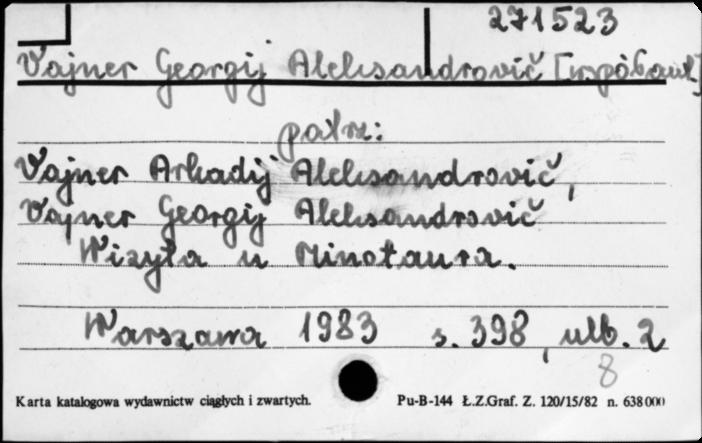 271523
Vajner Georgij Aleksandrovič [współaut]
patrz:
Vajner Arkadij Aleksandrovič,
Vajner Georgij Aleksandrovič
Wizyta u Minotaura.
Warszawa 1983 s. 398, ulb. 2
8
Karta katalogowa wydawnictw ciągłych i zwartych. Pu-B-144 Ł.Z.Graf. Z. 120/15/82 n. 638000